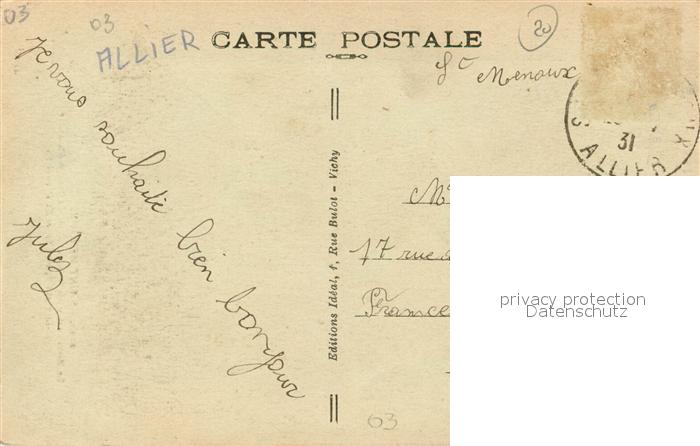 03
03
ALLIER
CARTE POSTALE
20
St Menoux
31
ALLIER
Je vous souhaite bien bonjour
Jules
Editions Idéal, 1, Rue Bulot - Vichy
17 rue
France
privacy protection
Datenschutz
03